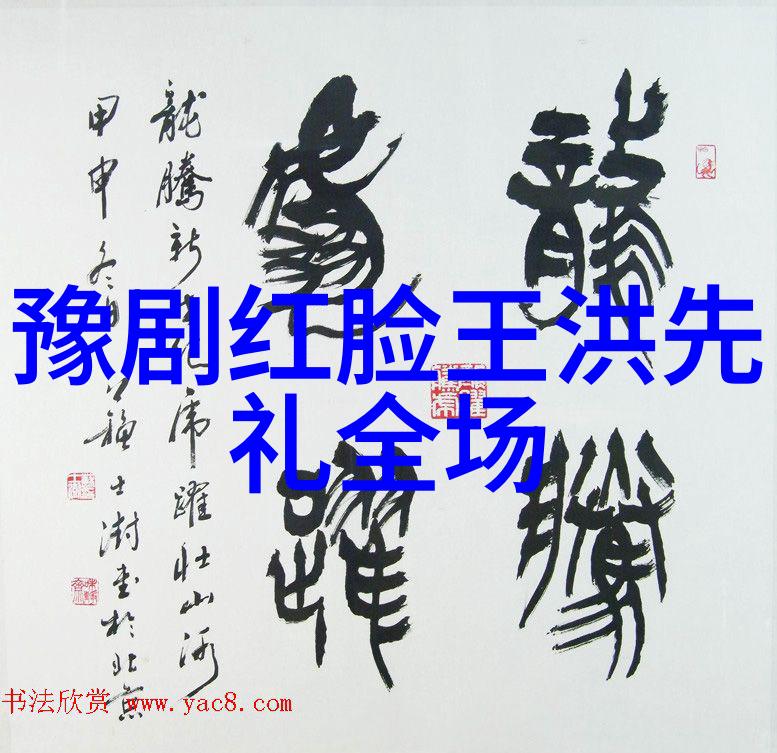 豫剧红脸王洪先
礼全场
龍騰
虎躍
龍騰新虎躍壯山河
甲申冬月蘇士澍書於北京
书法欣赏 www.yac8.com